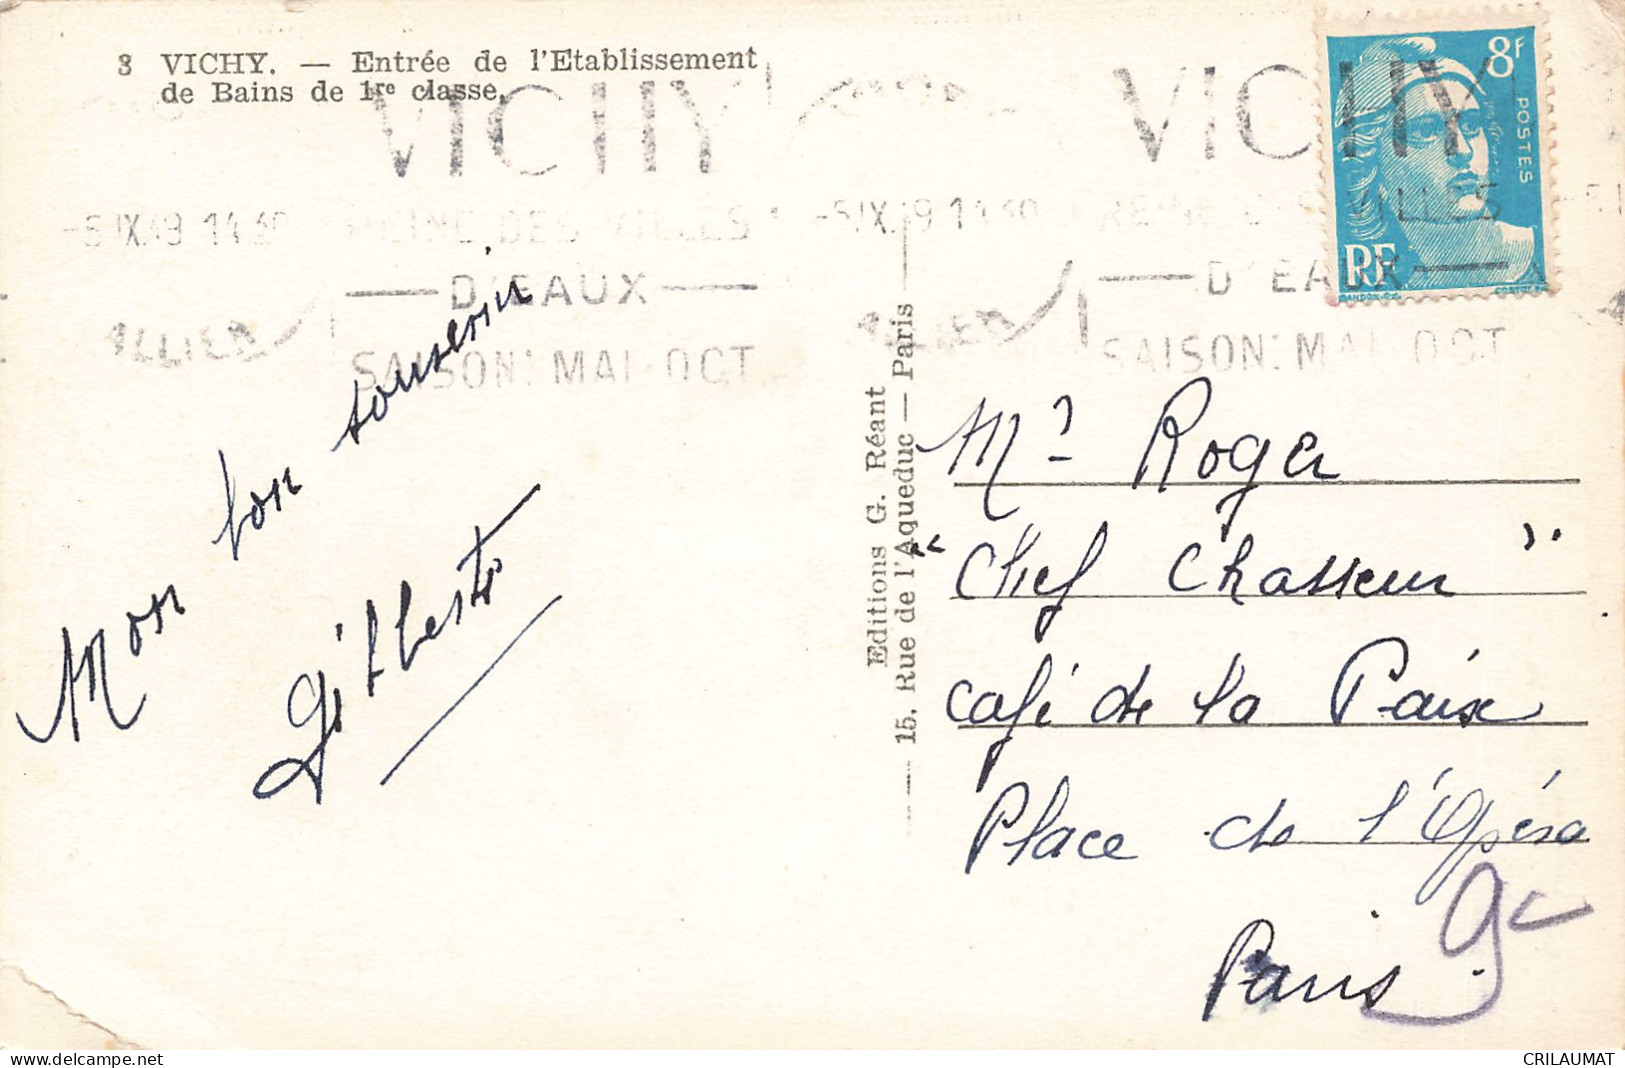 3 VICHY. — Entrée de l'Etablissement
de Bains de 1re classe.
VICHY
REINE DES VILLES
D'EAUX
SAISON: MAI-OCT
-5 IX 49 14 30
ALLIER
VICHY
REINE DES VILLES
D'EAUX
SAISON: MAI-OCT
-5 IX 49 14 30
ALLIER
8F
POSTES
RF
GANDON. D.
Mon bon souvenir
Gilberte
Editions G. Réant
15, Rue de l'Aqueduc — Paris
Mr Roger
"Chef Chasseur"
café de la Paix
Place de l'Opéra
Paris 9e
CRILAUMAT
delcampe.net